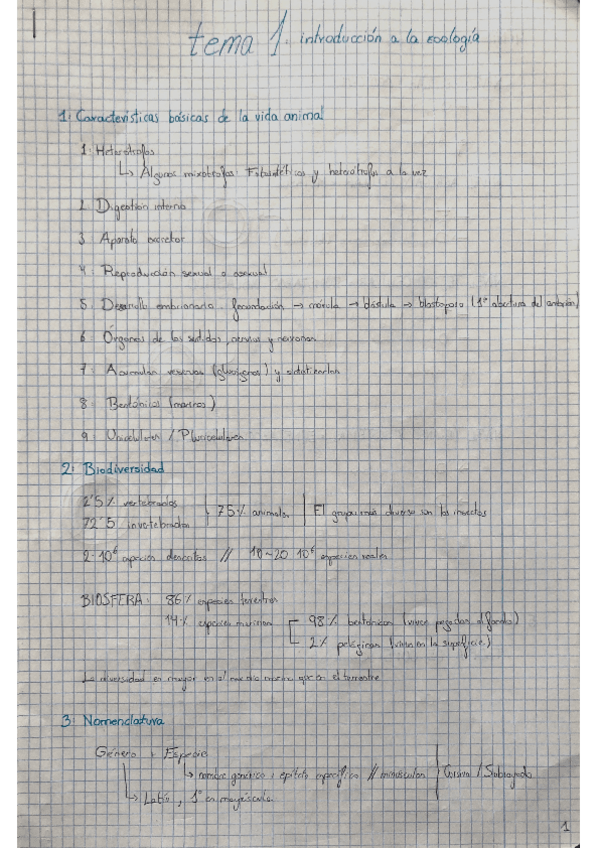 tema 1. introducción a la zoología
1. Características básicas de la vida animal
1. Heterótrofos
↳ Algunos mixótrofos: Fotosintéticos y heterótrofos a la vez
2. Digestión interna
3. Aparato excretor
4. Reproducción sexual o asexual
5. Desarrollo embrionario: fecundación → mórula → blástula → blastoporo (1ª abertura del embrión)
6. Órganos de los sentidos, nervios y neuronas
7. Acumulan reservas (glucógeno) y
8. Bentónicos (marinos)
9. Unicelulares / Pluricelulares
2. Biodiversidad
2'5% vertebrados
72'5 invertebrados
75% animales
El grupo más diverso son los insectos
2·10⁶ especies descritas // 10~20 10⁶ especies reales
BIOSFERA: 86% especies terrestres
14% especies marinas
98% bentónicas (viven pegadas al fondo)
2% pelágicas (viven en la superficie)
La diversidad es mayor en el medio marino que en el terrestre
3. Nomenclatura
Género + Especie
↳ nombre genérico + epíteto específico // minúsculas | Cursiva / Subrayado
↳ Latín, 1ª en mayúscula
1